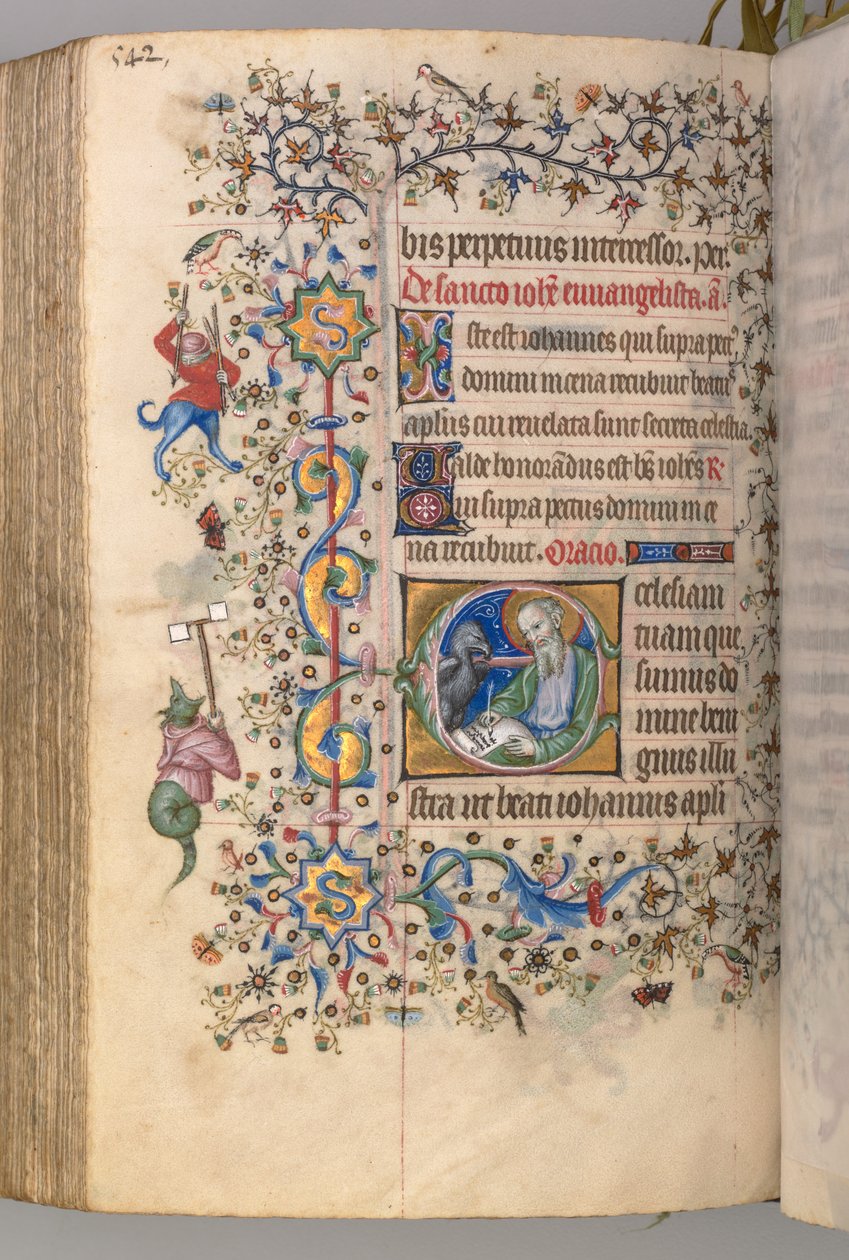 542,
S
bis perpetuus intercessor. per.
De sancto iohe euuangelista. a.
Iste est iohannes qui supra pect9
domini in cena recubuit beatus
aplus cui reuelata sunt secreta celestia.
Valde honorādus est bs iohes R
Qui supra pectus domini in ce
na recubuit. Oracio.
Ecclesiam
tuam que
sumus do
mine beni
gnus illu
stra ut beati iohannis apli
S